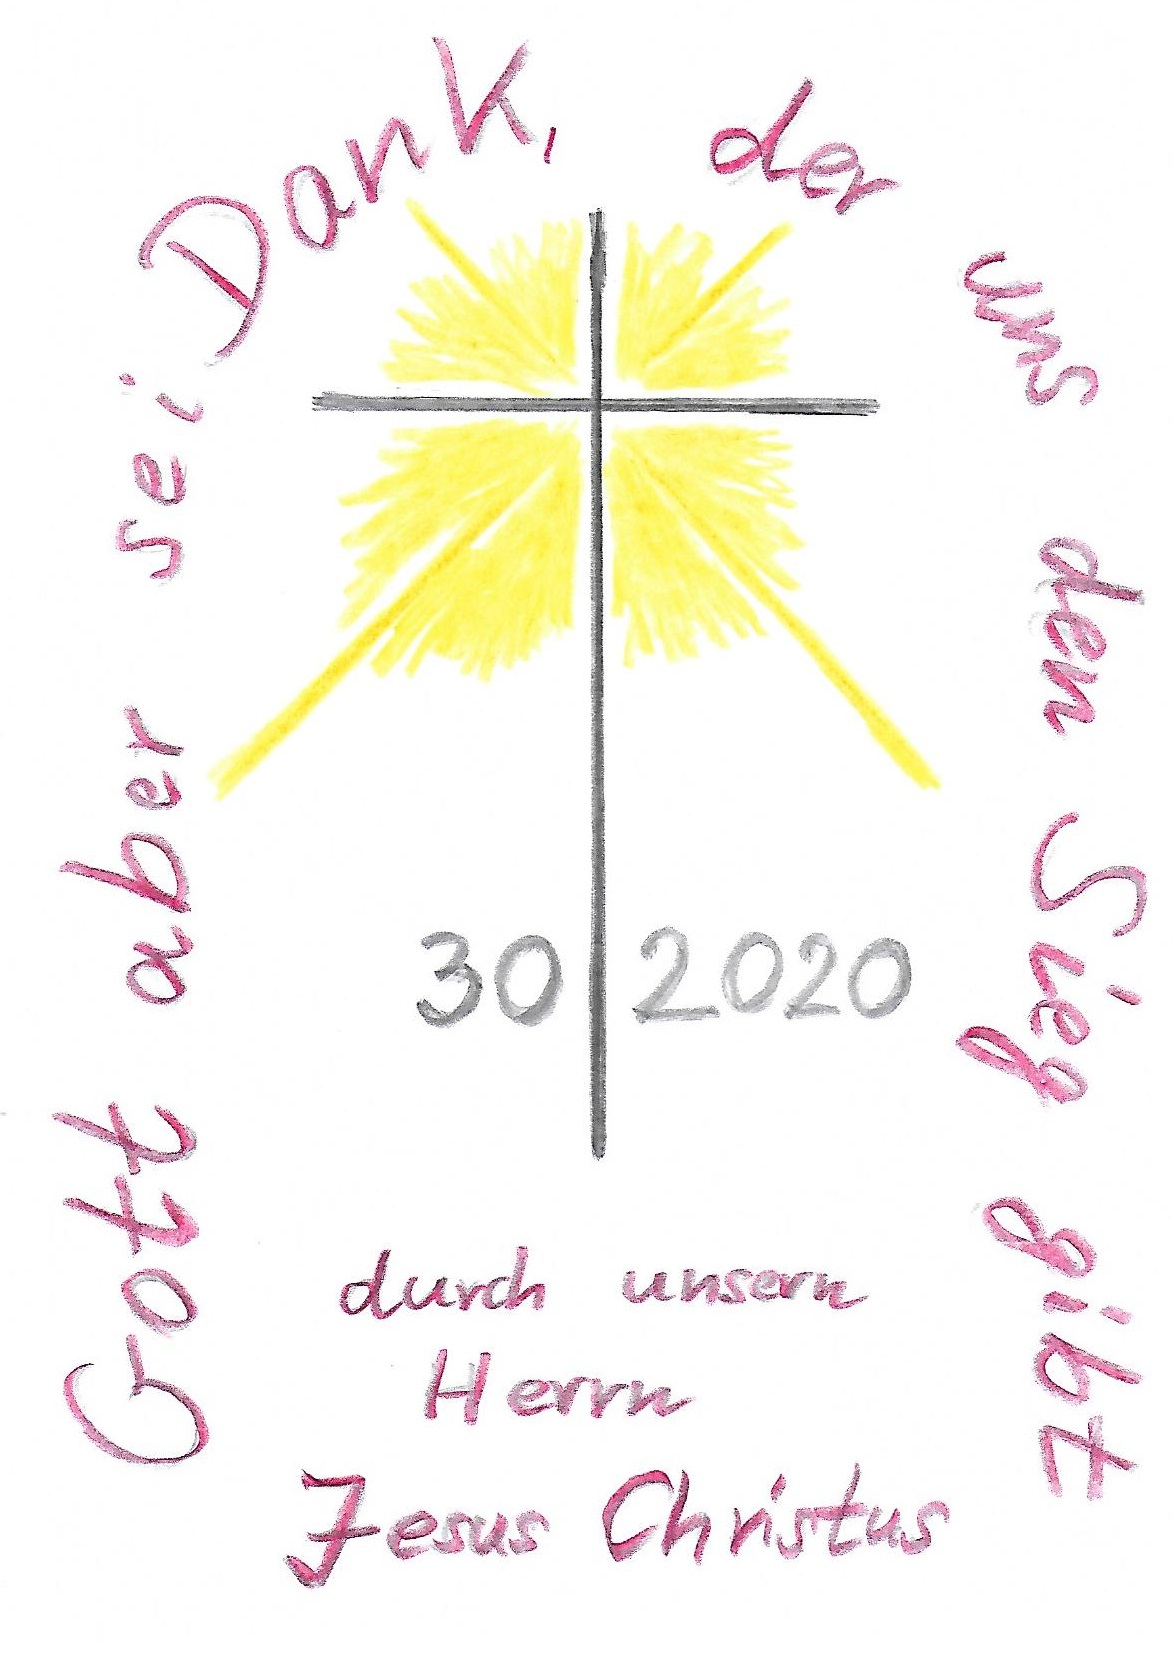 Gott aber sei Dank, der uns den Sieg gibt
30 2020
durch unsern
Herrn
Jesus Christus